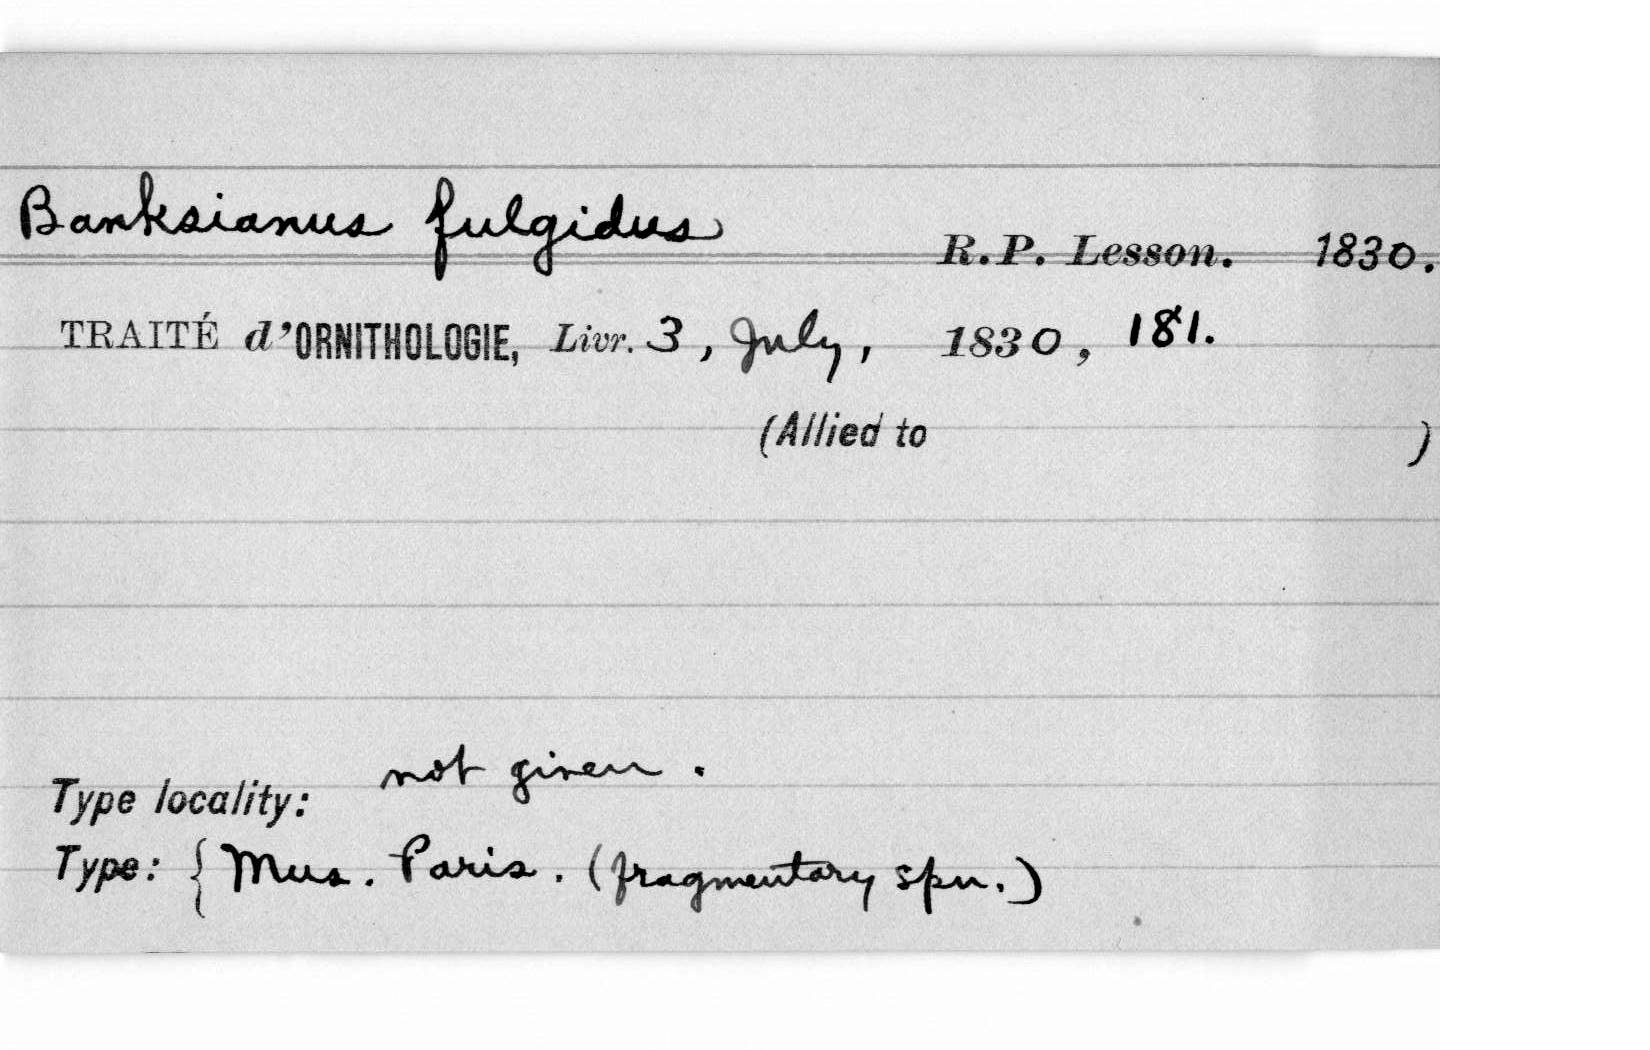 Banksianus fulgidus R.P. Lesson. 1830.
TRAITÉ d'ORNITHOLOGIE, Livr. 3, July, 1830, 181.
(Allied to )
Type locality: not given.
Type: { Mus. Paris. (fragmentary spn.)